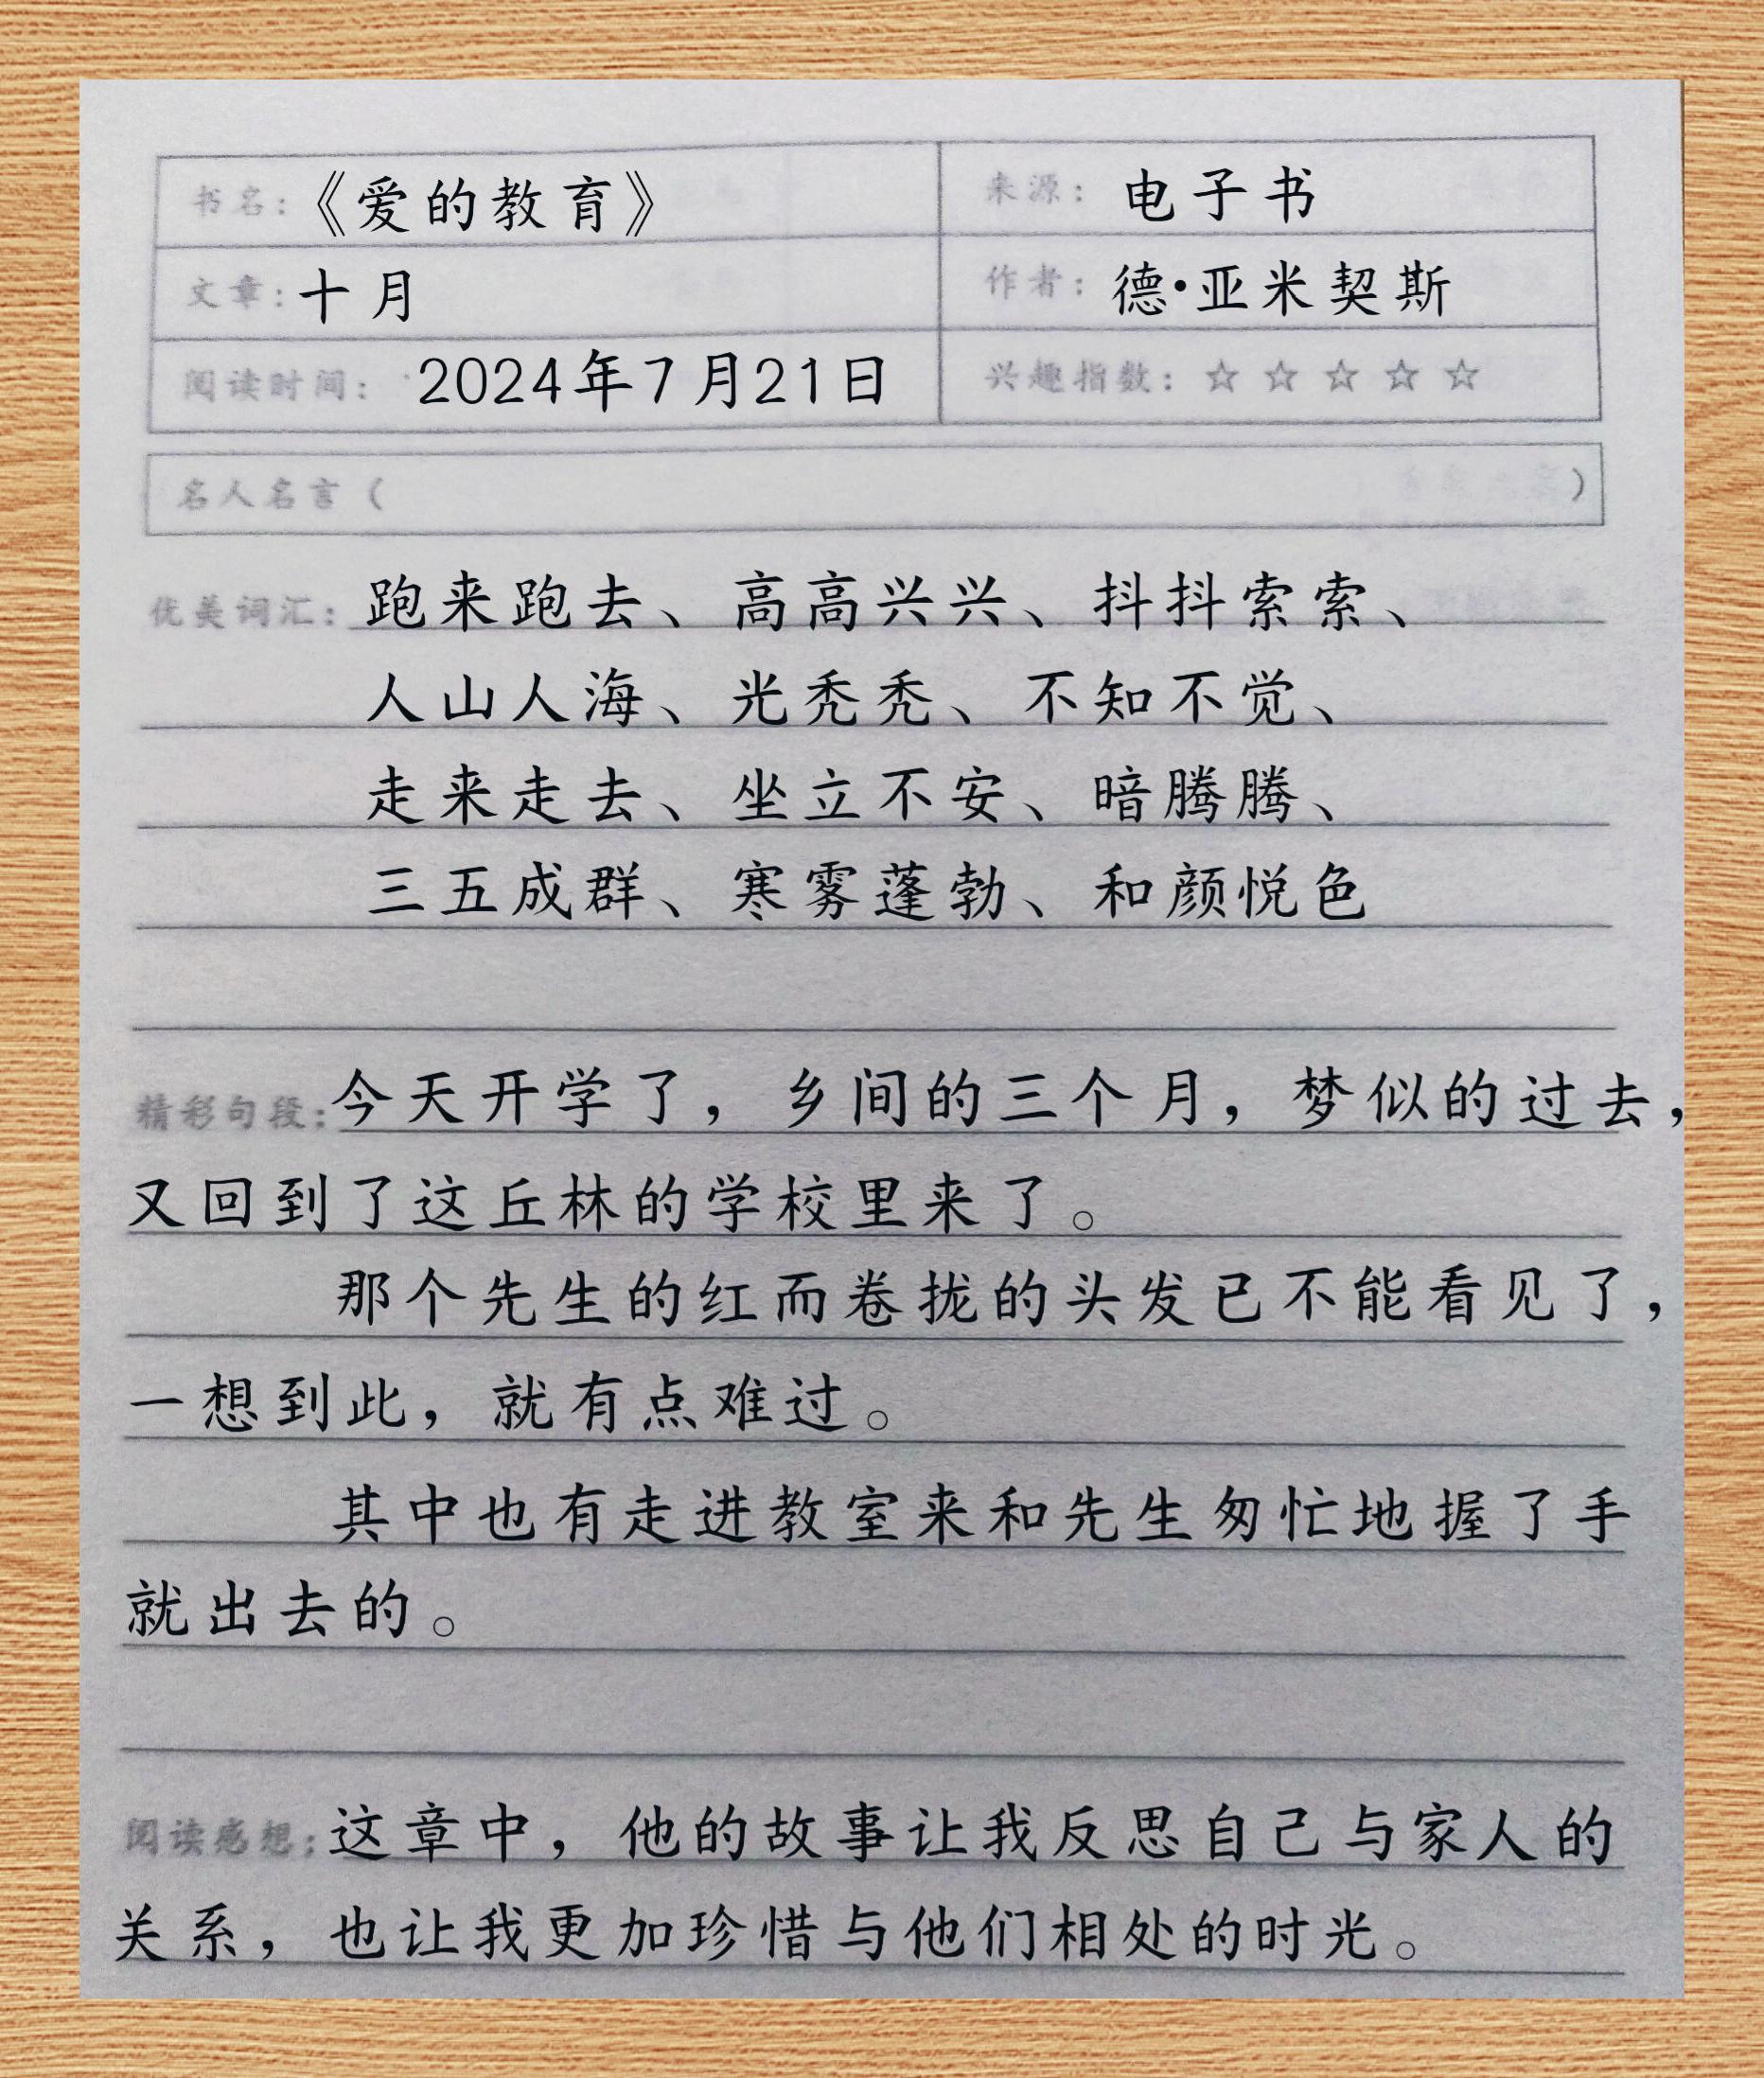 书名：《爱的教育》 来源： 电子书
文章：十月 作者： 德·亚米契斯
阅读时间： 2024年7月21日 兴趣指数：☆☆☆☆☆
名人名言（ ）
优美词汇： 跑来跑去、高高兴兴、抖抖索索、
人山人海、光秃秃、不知不觉、
走来走去、坐立不安、暗腾腾、
三五成群、寒雾蓬勃、和颜悦色
精彩句段：今天开学了，乡间的三个月，梦似的过去，
又回到了这丘林的学校里来了。
那个先生的红而卷拢的头发已不能看见了，
一想到此，就有点难过。
其中也有走进教室来和先生匆忙地握了手
就出去的。
阅读感想：这章中，他的故事让我反思自己与家人的
关系，也让我更加珍惜与他们相处的时光。